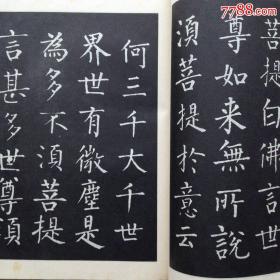 菩提白佛言世
尊如来無所說
須菩提於意云
何三千大千世
界世有微塵是
為多不須菩提
言甚多世尊須
7788.com